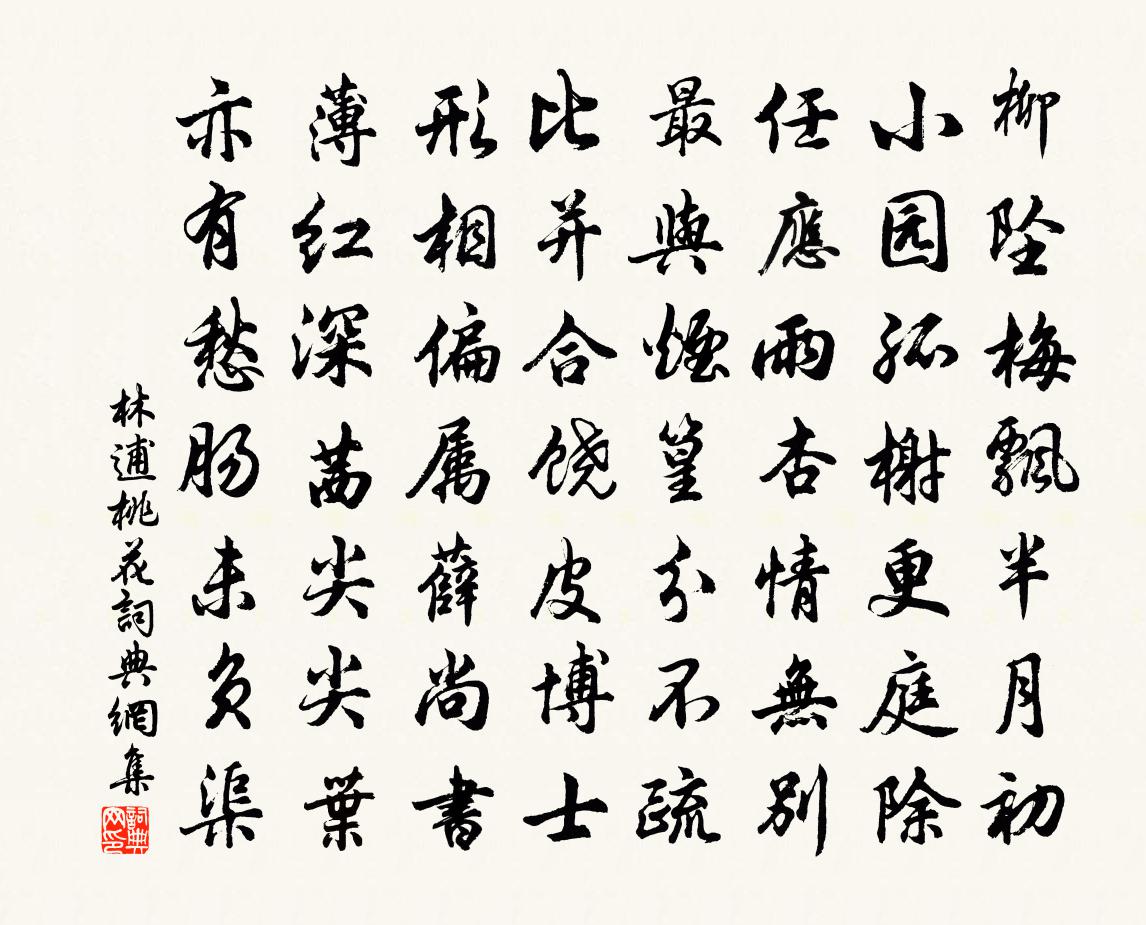 柳坠梅飄半月初
小园孤榭更庭除
任應雨杏情無別
最與煙篁分不疏
比并合饶皮博士
形相偏属薛尚書
薄红深茜尖尖葉
亦有愁肠未负渠
林逋桃花詞典網集
詞典网印